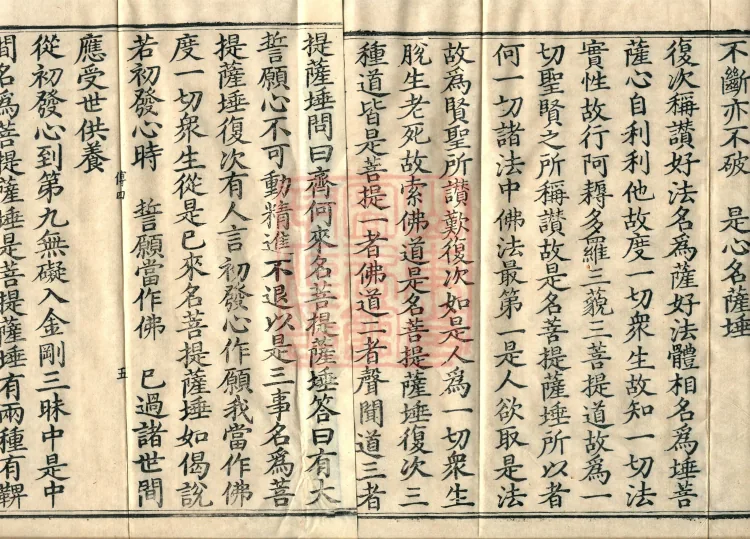 不斷亦不破　是心名薩埵
復次稱讚好法名為薩好法體相名為埵菩
薩心自利利他故度一切衆生故知一切法
實性故行阿耨多羅三藐三菩提道故為一
切聖賢之所稱讚故是名菩提薩埵所以者
何一切諸法中佛法最第一是人欲取是法
故為賢聖所讚歎復次如是人為一切衆生
脫生老死故索佛道是名菩提薩埵復次三
種道皆是菩提一者佛道二者聲聞道三者
提薩埵問曰齊何來名菩提薩埵答曰有大
誓願心不可動精進不退以是三事名為菩
提薩埵復次有人言初發心作願我當作佛
度一切衆生從是已來名菩提薩埵如偈說
若初發心時　誓願當作佛　已過諸世間
四　五
應受世供養
從初發心到第九無礙入金剛三昧中是中
間名為菩提薩埵是菩提薩埵有兩種有鞞